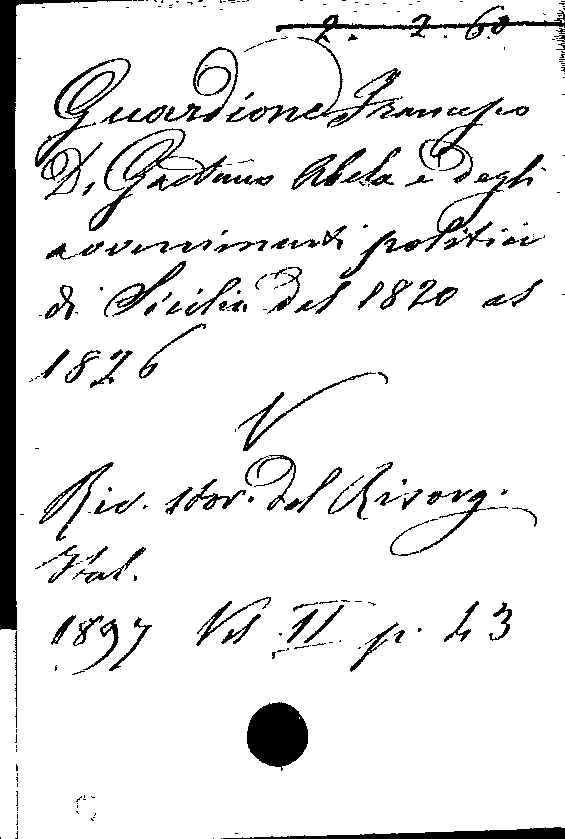 2. 2. 60
Guardione Francesco
Di Gaetano Abela e degli
avvenimenti politici
di Sicilia dal 1820 al
1826
V
Riv. stor. del Risorg.
Ital.
1897 Vol II p. 43